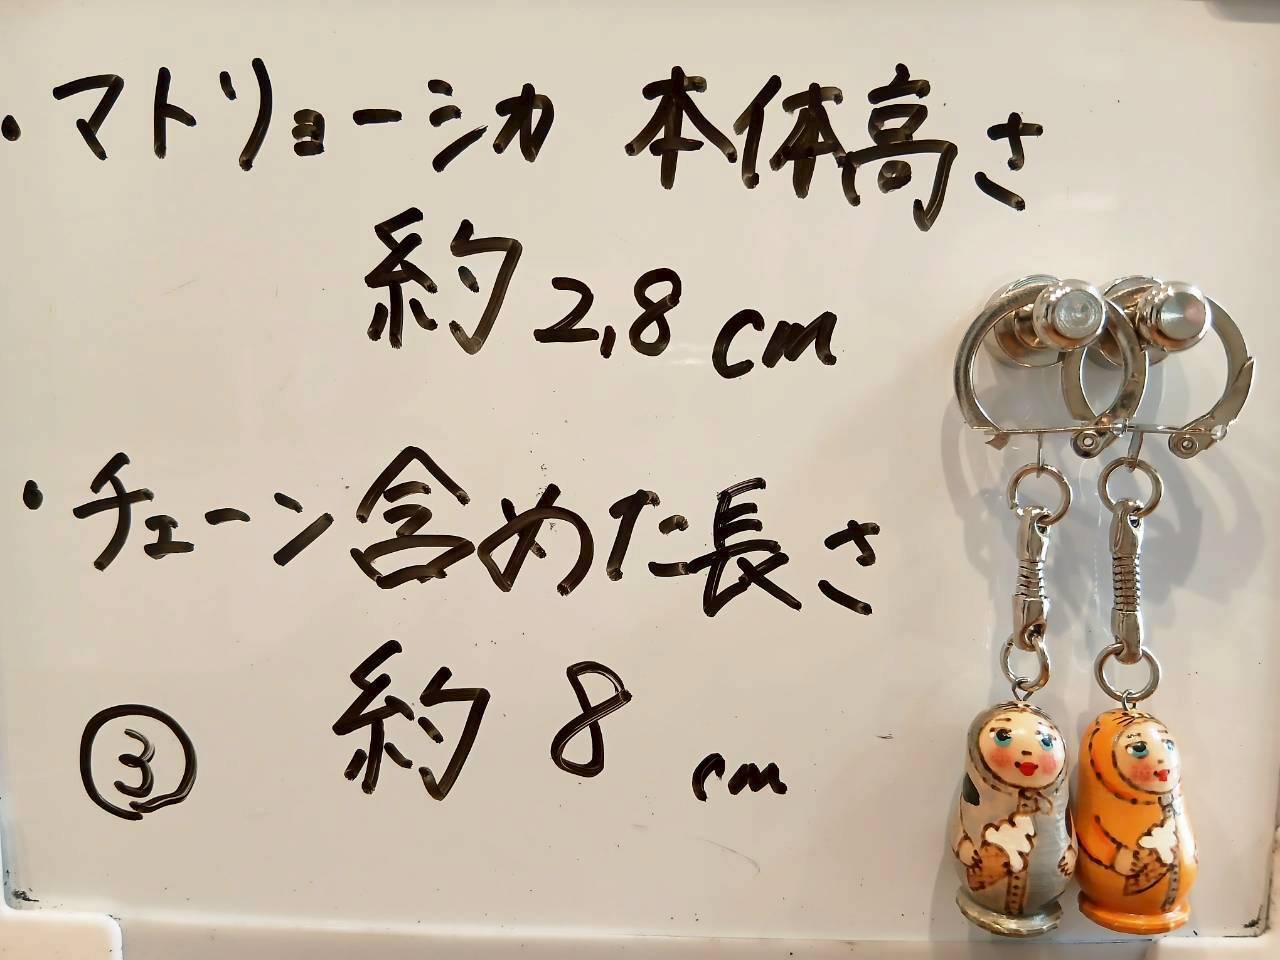 ・マトリョーシカ 本体高さ
約2.8cm
・チェーン含めた長さ
約 8 cm
③